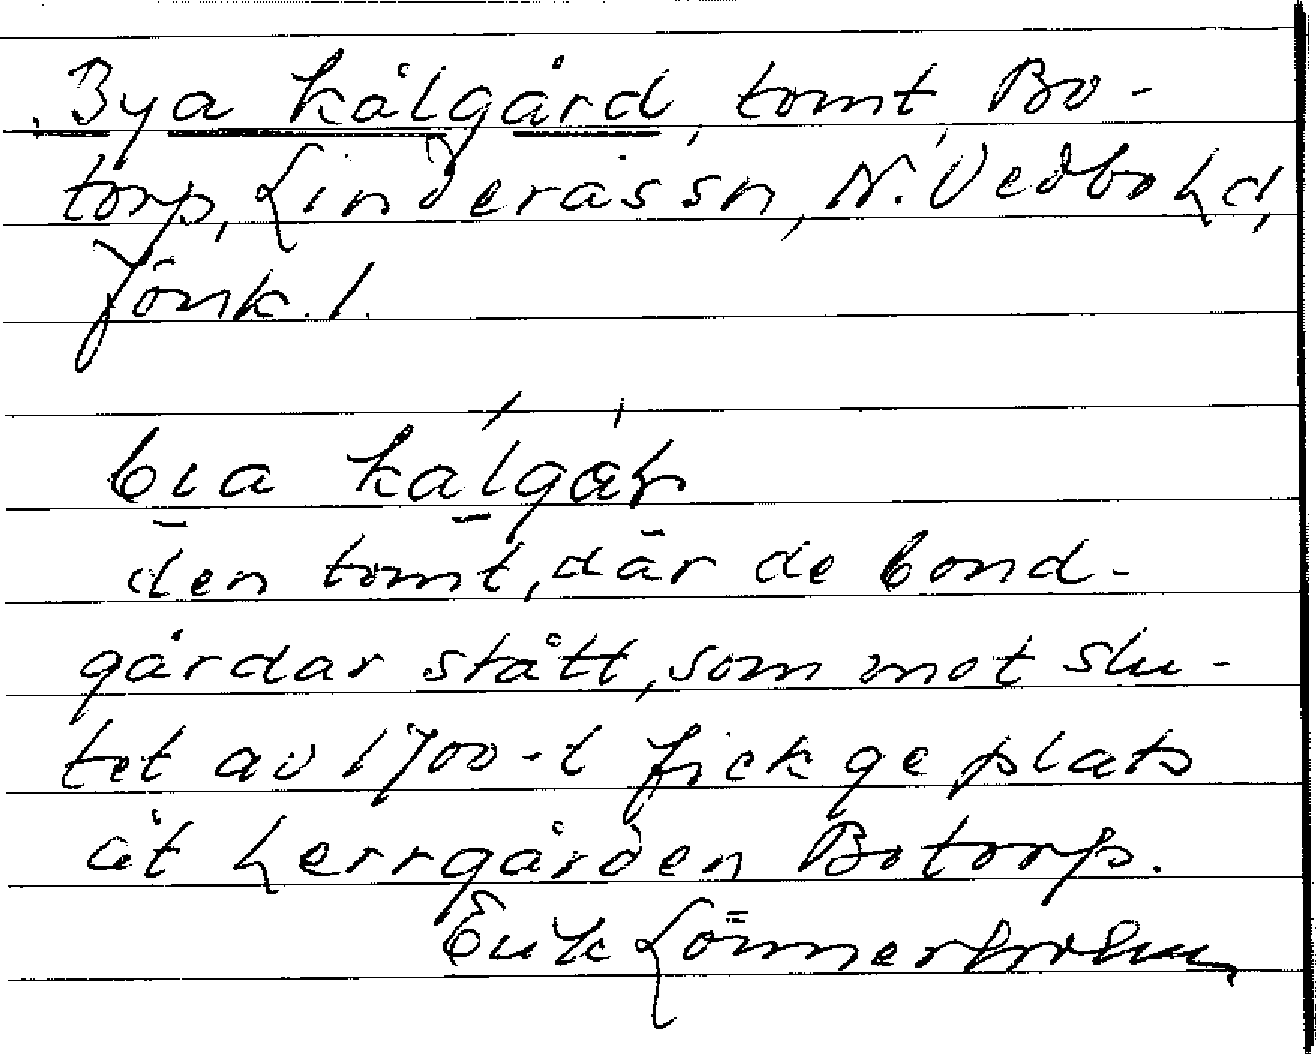 Bya kålgård, tomt, Bo-
torp, Linderås sn, N. Vedbo hd,
Jönk. l.
bıa kálgár
den tomt, där de bond-
gårdar stått, som mot slu-
tet av 1700-t fick ge plats
åt herrgården Botorp.
Erik Lönnerholm